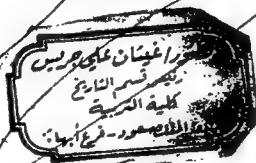 غيثان علي جريس
رئيس قسم التاريخ
كلية التربية
الملك سعود - فرع أبها